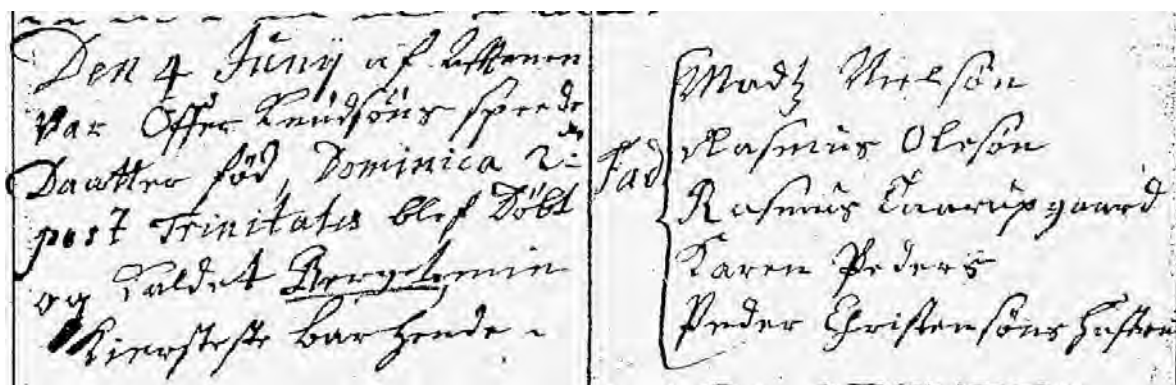 Den 4 Junij af Afftenen
var Offer Knudsøns spæde
Daatter fød, Dominica 2:
post Trinitatis blef Døbt
og Kaldet
Kierstefte bar hende
Fad
Madtz Nielsøn
Rasmus Olesøn
Rasmus Taarupgaard
Karen Peders
Peder Christensøns Hustru